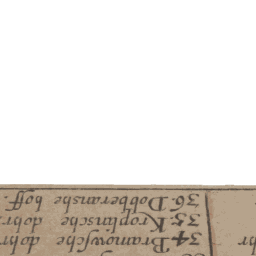 34 Bramowsche dohr
35. Kroplinsche dohr.
36. Dobberanshe hoff.